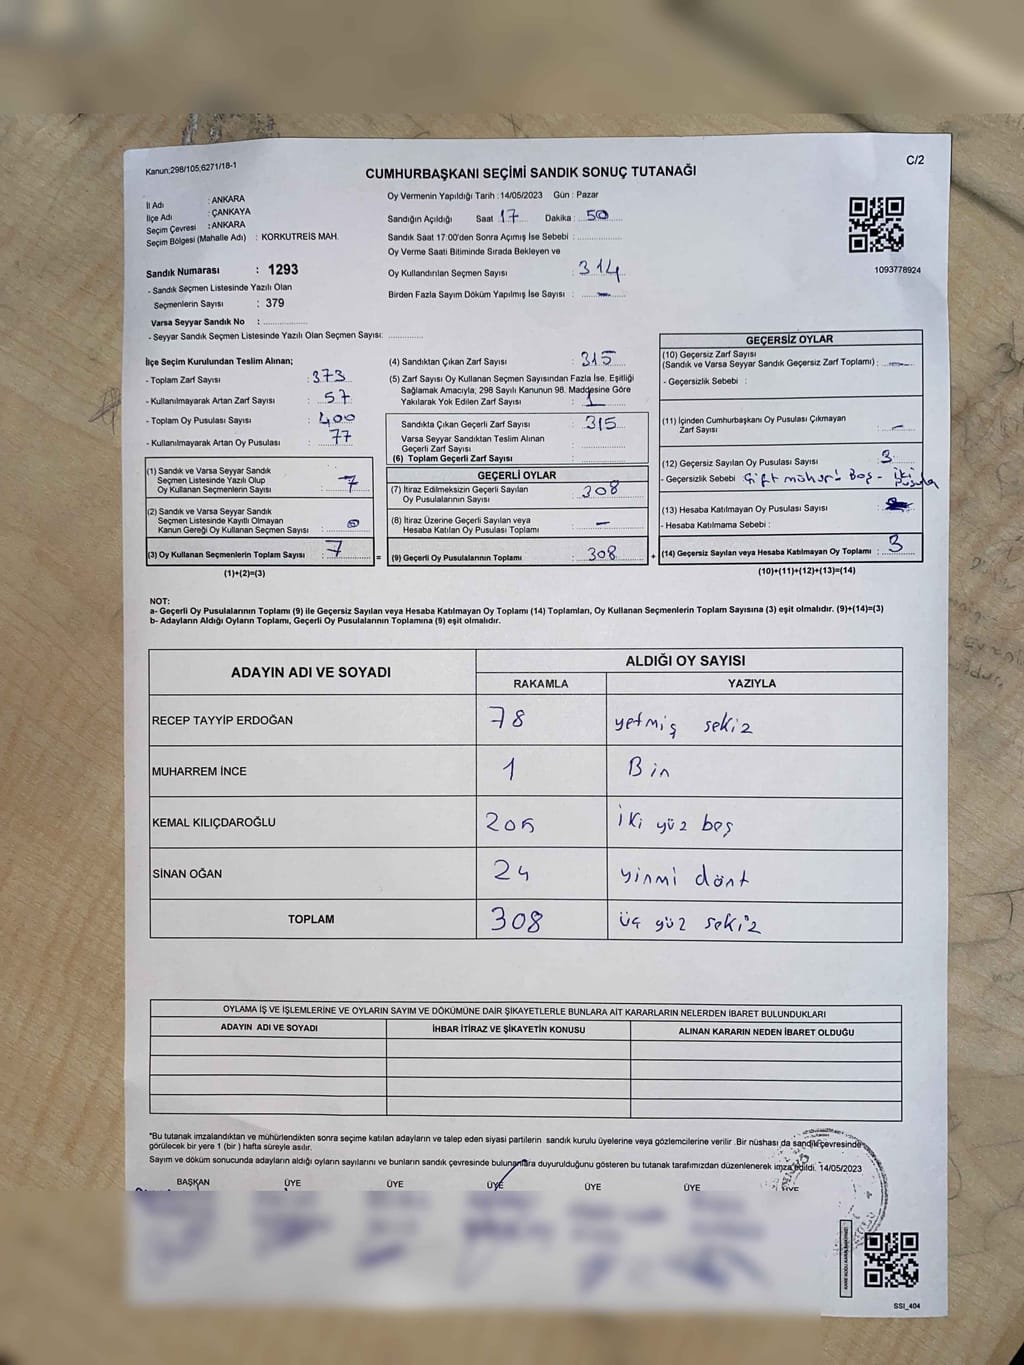 Kanun;298/105;6271/18-1
C/2
CUMHURBAŞKANI SEÇİMİ SANDIK SONUÇ TUTANAĞI
İl Adı : ANKARA
İlçe Adı : ÇANKAYA
Seçim Çevresi : ANKARA
Seçim Bölgesi (Mahalle Adı) : KORKUTREİS MAH.
Sandık Numarası : 1293
- Sandık Seçmen Listesinde Yazılı Olan
Seçmenlerin Sayısı : 379
Varsa Seyyar Sandık No :
- Seyyar Sandık Seçmen Listesinde Yazılı Olan Seçmen Sayısı:
Oy Vermenin Yapıldığı Tarih : 14/05/2023 Gün : Pazar
Sandığın Açıldığı Saat 17 Dakika : 50
Sandık Saat 17:00'den Sonra Açımış İse Sebebi :
Oy Verme Saati Bitiminde Sırada Bekleyen ve
Oy Kullandırılan Seçmen Sayısı : 314
Birden Fazla Sayım Döküm Yapılmış İse Sayısı : —
1093778924
İlçe Seçim Kurulundan Teslim Alınan;
- Toplam Zarf Sayısı : 373
- Kullanılmayarak Artan Zarf Sayısı : 57
- Toplam Oy Pusulası Sayısı : 400
- Kullanılmayarak Artan Oy Pusulası : 77
(1) Sandık ve Varsa Seyyar Sandık
Seçmen Listesinde Yazılı Olup
Oy Kullanan Seçmenlerin Sayısı : 7
(2) Sandık ve Varsa Seyyar Sandık
Seçmen Listesinde Kayıtlı Olmayan
Kanun Gereği Oy Kullanan Seçmen Sayısı :
(3) Oy Kullanan Seçmenlerin Toplam Sayısı : 7
(1)+(2)=(3)
(4) Sandıktan Çıkan Zarf Sayısı : 315
(5) Zarf Sayısı Oy Kullanan Seçmen Sayısından Fazla İse, Eşitliği
Sağlamak Amacıyla; 298 Sayılı Kanunun 98. Maddesine Göre
Yakılarak Yok Edilen Zarf Sayısı : 1
Sandıkta Çıkan Geçerli Zarf Sayısı : 315
Varsa Seyyar Sandıktan Teslim Alınan
Geçerli Zarf Sayısı :
(6) Toplam Geçerli Zarf Sayısı :
GEÇERLİ OYLAR
(7) İtiraz Edilmeksizin Geçerli Sayılan
Oy Pusulalarının Sayısı : 308
(8) İtiraz Üzerine Geçerli Sayılan veya
Hesaba Katılan Oy Pusulası Toplamı : —
= (9) Geçerli Oy Pusulalarının Toplamı : 308 +
GEÇERSİZ OYLAR
(10) Geçersiz Zarf Sayısı
(Sandık ve Varsa Seyyar Sandık Geçersiz Zarf Toplamı) : —
- Geçersizlik Sebebi :
(11) İçinden Cumhurbaşkanı Oy Pusulası Çıkmayan
Zarf Sayısı : —
(12) Geçersiz Sayılan Oy Pusulası Sayısı : 3
- Geçersizlik Sebebi Çift mühür - Boş - iki pusula
(13) Hesaba Katılmayan Oy Pusulası Sayısı :
- Hesaba Katılmama Sebebi :
(14) Geçersiz Sayılan veya Hesaba Katılmayan Oy Toplamı : 3
(10)+(11)+(12)+(13)=(14)
NOT:
a- Geçerli Oy Pusulalarının Toplamı (9) ile Geçersiz Sayılan veya Hesaba Katılmayan Oy Toplamı (14) Toplamları, Oy Kullanan Seçmenlerin Toplam Sayısına (3) eşit olmalıdır. (9)+(14)=(3)
b- Adayların Aldığı Oyların Toplamı, Geçerli Oy Pusulalarının Toplamına (9) eşit olmalıdır.
ADAYIN ADI VE SOYADI
ALDIĞI OY SAYISI
RAKAMLA YAZIYLA
RECEP TAYYİP ERDOĞAN 78 yetmiş sekiz
MUHARREM İNCE 1 Bir
KEMAL KILIÇDAROĞLU 205 iki yüz beş
SİNAN OĞAN 24 yirmi dört
TOPLAM 308 üç yüz sekiz
OYLAMA İŞ VE İŞLEMLERİNE VE OYLARIN SAYIM VE DÖKÜMÜNE DAİR ŞİKAYETLERLE BUNLARA AİT KARARLARIN NELERDEN İBARET BULUNDUKLARI
ADAYIN ADI VE SOYADI İHBAR İTİRAZ VE ŞİKAYETİN KONUSU ALINAN KARARIN NEDEN İBARET OLDUĞU
*Bu tutanak imzalandıktan ve mühürlendikten sonra seçime katılan adayların ve talep eden siyasi partilerin sandık kurulu üyelerine veya gözlemcilerine verilir .Bir nüshası da sandık çevresinde
görülecek bir yere 1 (bir ) hafta süreyle asılır.
Sayım ve döküm sonucunda adayların aldığı oyların sayılarını ve bunların sandık çevresinde bulunanlara duyurulduğunu gösteren bu tutanak tarafımızdan düzenlenerek imza edildi. 14/05/2023
BAŞKAN ÜYE ÜYE ÜYE ÜYE ÜYE ÜYE
SSI_404